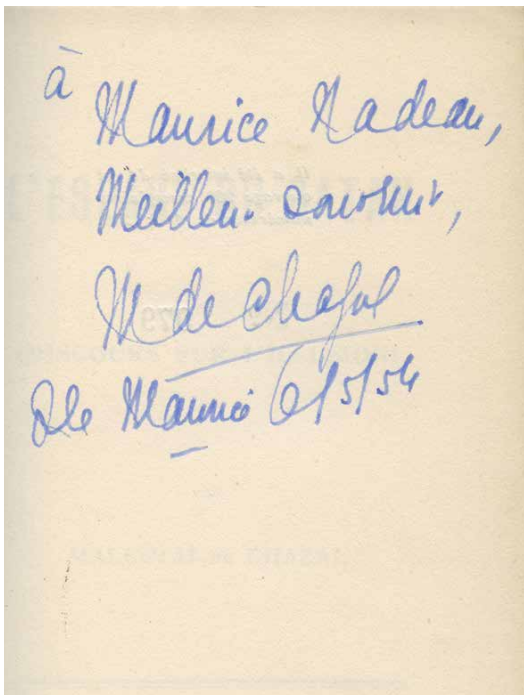 à
Maurice Nadeau,
Meilleur souvenir,
M de Chazal
Ile Maurice 6/5/54